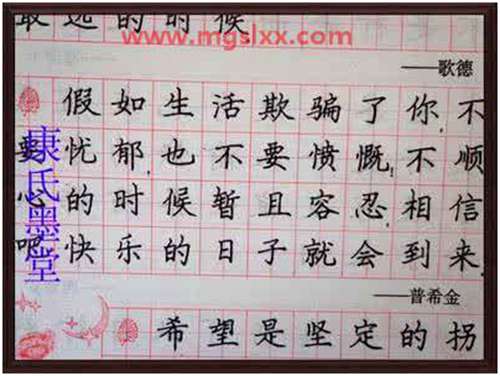 最远的时候
www.mgslxx.com
——歌德
假如生活欺骗了你,不
要忧郁,也不要愤慨,不顺
心的时候暂且容忍,相信
吧,快乐的日子就会到来.
——普希金
希望是坚定的拐
康氏墨堂